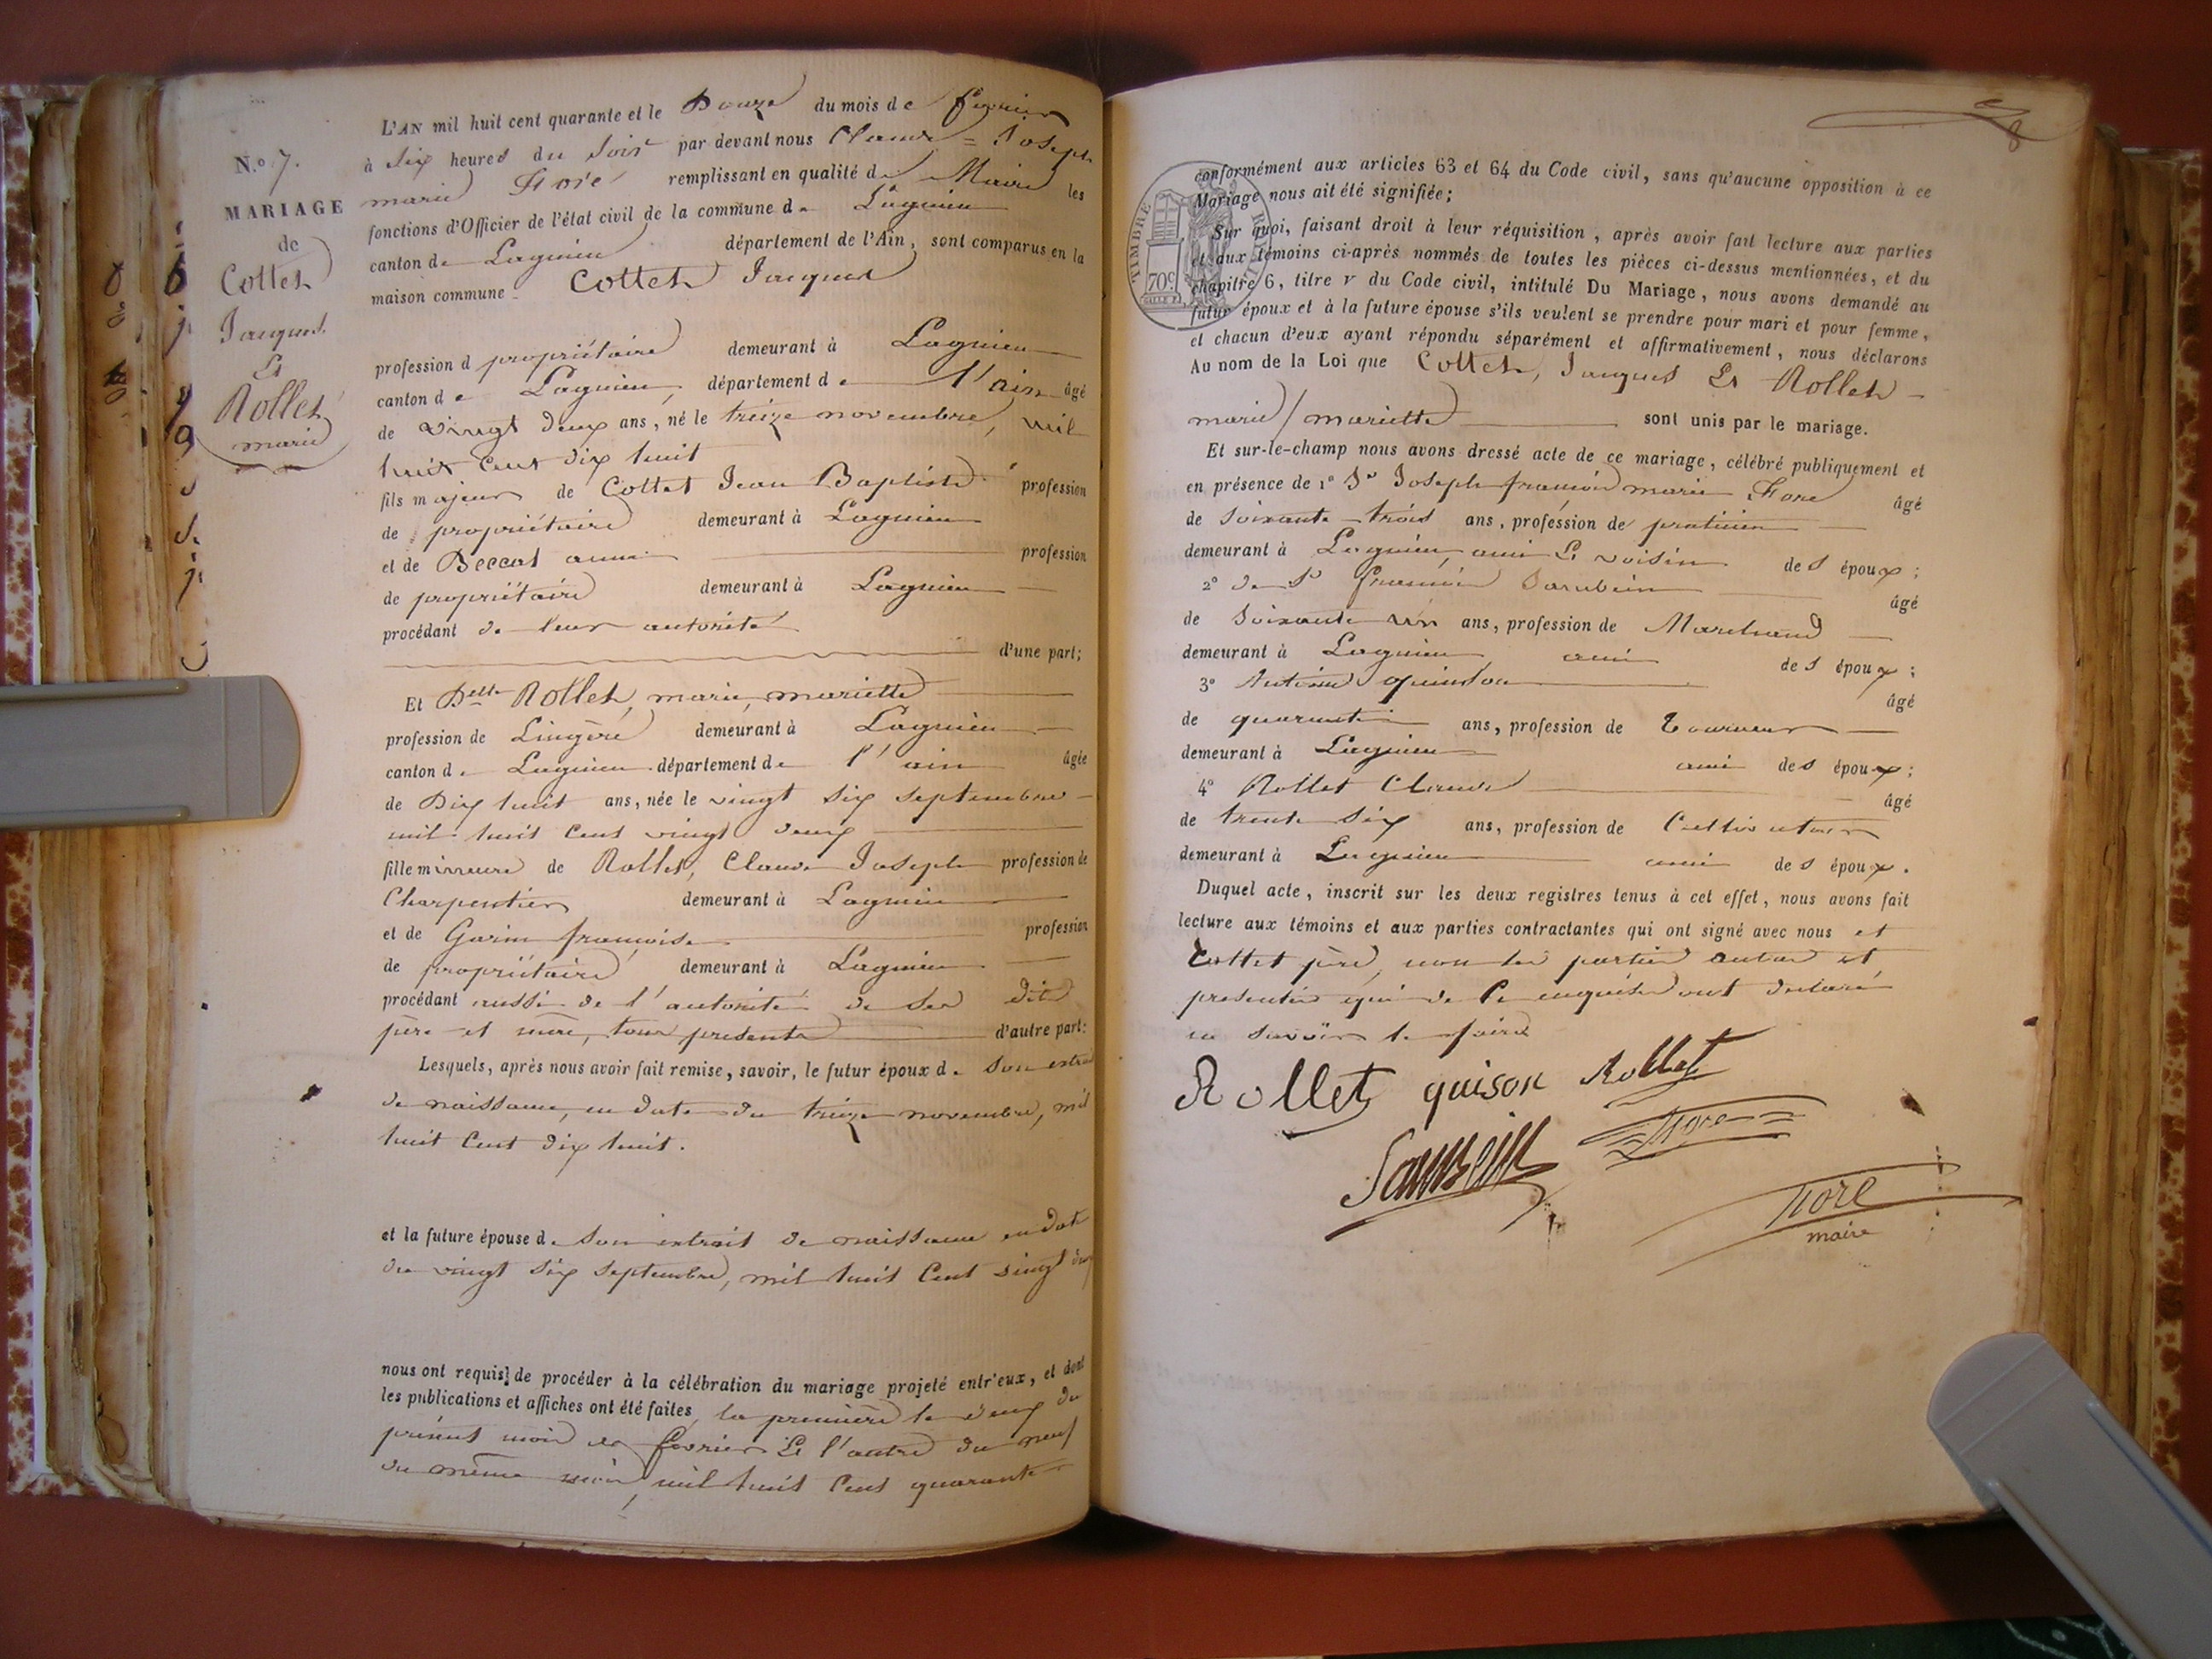 N.° 7.
MARIAGE
de
Collet
Jacques
Et
Rollet
marie
L'AN mil huit cent quarante et le Douze du mois de fevrier
à Six heures du soir par devant nous Claude = Joseph
marie remplissant en qualité de Maire les
fonctions d'Officier de l'état civil de la commune de Lagnieu
canton de Lagnieu département de l'Ain, sont comparus en la
maison commune Cottet Jacques
profession d propriétaire demeurant à Lagnieu
canton de Lagnieu, département de l'ain âgé
de vingt deux ans, né le treize novembre, mil
huit cent dix huit
fils majeur de Cottet Jean Baptiste profession
de propriétaire demeurant à Lagnieu
et de Beccat anne profession
de propriétaire demeurant à Lagnieu
procédant de leur autorité
d'une part;
Et Delle Rollet, marie, mariette
profession de Lingère demeurant à Lagnieu
canton de Lagnieu département de l'ain âgée
de Dix huit ans, née le vingt six septembre
mil huit cent vingt deux
fille mineure de Rollet, Claude Joseph profession de
Charpentier demeurant à Lagnieu
et de Garin françoise profession
de propriétaire demeurant à Lagnieu
procédant aussi de l'autorité de ses dits
père et mère, tous presents d'autre part:
Lesquels, après nous avoir fait remise, savoir, le futur époux de Son extrait
de naissance, en date du treize novembre, mil
huit cent dix huit.
et la future épouse de Son extrait de naissance en date
du vingt six septembre, mil huit cent vingt deux
nous ont requis de procéder à la célébration du mariage projeté entr'eux, et dont
les publications et affiches ont été faites, la première le deux du
présent mois de fevrier Et l'autre du neuf
du même mois, mil huit cent quarante
8
TIMBRE ROYAL
70c
conformément aux articles 63 et 64 du Code civil, sans qu'aucune opposition à ce
Mariage nous ait été signifiée;
Sur quoi, faisant droit à leur réquisition, après avoir fait lecture aux parties
et aux témoins ci-après nommés de toutes les pièces ci-dessus mentionnées, et du
chapitre 6, titre v du Code civil, intitulé Du Mariage, nous avons demandé au
futur époux et à la future épouse s'ils veulent se prendre pour mari et pour femme,
et chacun d'eux ayant répondu séparément et affirmativement, nous déclarons
Au nom de la Loi que Cottet, Jacques Et Rollet
marie / mariette sont unis par le mariage.
Et sur-le-champ nous avons dressé acte de ce mariage, célébré publiquement et
en présence de 1° Sr Joseph françois marie âgé
de Soixante-trois ans, profession de praticien
demeurant à Lagnieu, ami Et voisin des époux;
2° de Sr françois âgé
de Soixante un ans, profession de Marchand
demeurant à Lagnieu ami des époux;
3° Antoine âgé
de quarante ans, profession de Tourneur
demeurant à Lagnieu ami des époux;
4° Rollet Claude âgé
de trente six ans, profession de Cultivateur
demeurant à Lagnieu ami des époux.
Duquel acte, inscrit sur les deux registres tenus à cet effet, nous avons fait
lecture aux témoins et aux parties contractantes qui ont signé avec nous et
Cottet père, non les parties autres et
presentes qui de Ce enquises ont declaré
ne savoir le faire
Rollet guison Rollet
maire